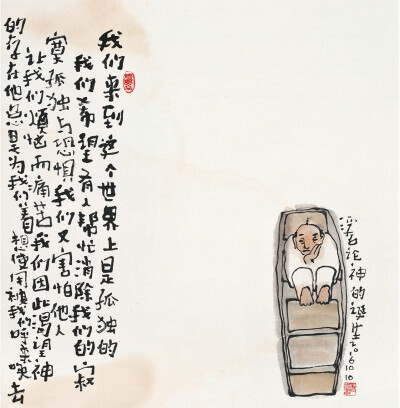 我们来到这个世界上是孤独的
我们希望有人帮忙消除我们的寂
寞孤独与恐惧我们又害怕他人
让我们烦恼而痛苦我们因此渴望神
的存在他总是为我们着想使用被我们呼来唤去
浮石论神的诞生2016.10.10